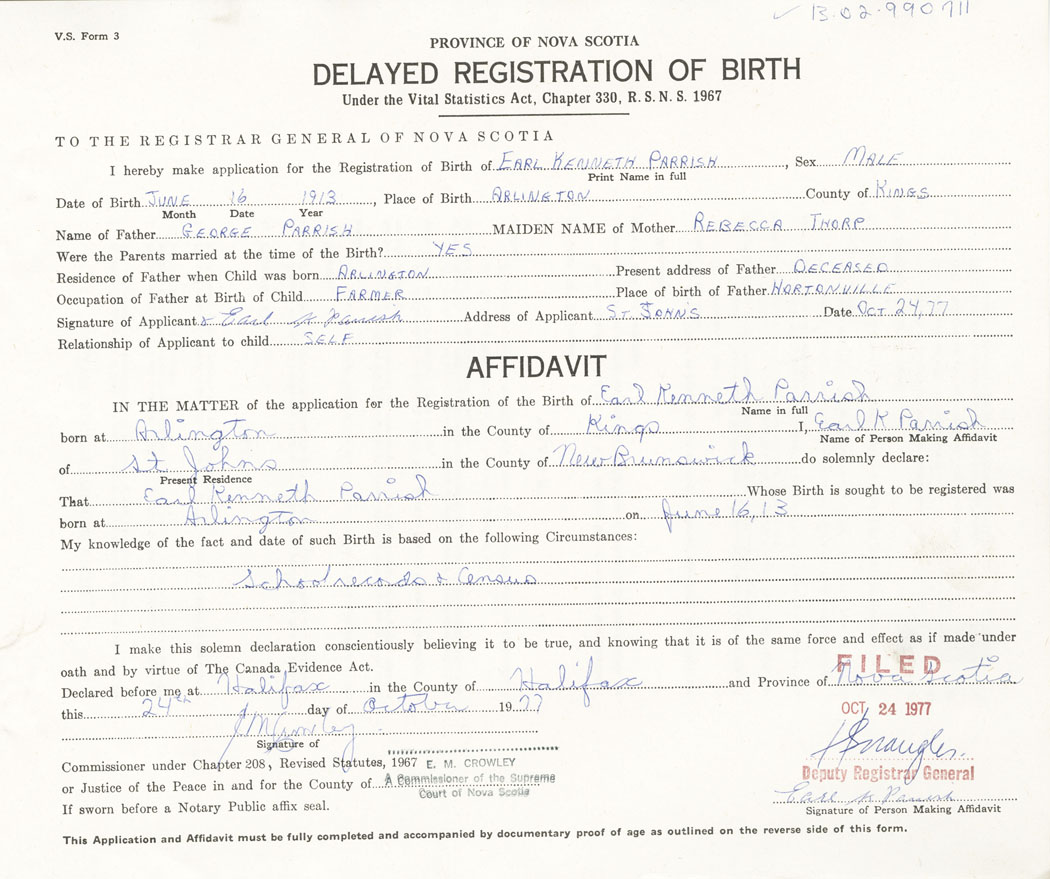 ✓ 13·02·990711
V.S. Form 3
PROVINCE OF NOVA SCOTIA
DELAYED REGISTRATION OF BIRTH
Under the Vital Statistics Act, Chapter 330, R. S. N. S. 1967
TO THE REGISTRAR GENERAL OF NOVA SCOTIA
I hereby make application for the Registration of Birth of EARL KENNETH PARRISH, Sex MALE
Print Name in full
Date of Birth JUNE 16 1913, Place of Birth ARLINGTON County of KINGS
Month Date Year
Name of Father GEORGE PARRISH MAIDEN NAME of Mother REBECCA THORP
Were the Parents married at the time of the Birth? YES
Residence of Father when Child was born ARLINGTON Present address of Father DECEASED
Occupation of Father at Birth of Child FARMER Place of birth of Father HORTONVILLE
Signature of Applicant x Earl K Parrish Address of Applicant ST JOHNS Date OCT 24, 77
Relationship of Applicant to child SELF
AFFIDAVIT
IN THE MATTER of the application for the Registration of the Birth of Earl Kenneth Parrish
Name in full
born at Arlington in the County of Kings I, Earl K Parrish
Name of Person Making Affidavit
of St Johns in the County of New Brunswick do solemnly declare:
Present Residence
That Earl Kenneth Parrish Whose Birth is sought to be registered was
born at Arlington on June 16, 13
My knowledge of the fact and date of such Birth is based on the following Circumstances:
School records & Census
I make this solemn declaration conscientiously believing it to be true, and knowing that it is of the same force and effect as if made under
oath and by virtue of The Canada Evidence Act.
FILED
Declared before me at Halifax in the County of Halifax and Province of Nova Scotia
this 24th day of October 19 77
OCT 24 1977
Signature of
Commissioner under Chapter 208, Revised Statutes, 1967 E. M. CROWLEY
Deputy Registrar General
or Justice of the Peace in and for the County of A Commissioner of the Supreme
Court of Nova Scotia
Earl K Parrish
Signature of Person Making Affidavit
If sworn before a Notary Public affix seal.
This Application and Affidavit must be fully completed and accompanied by documentary proof of age as outlined on the reverse side of this form.